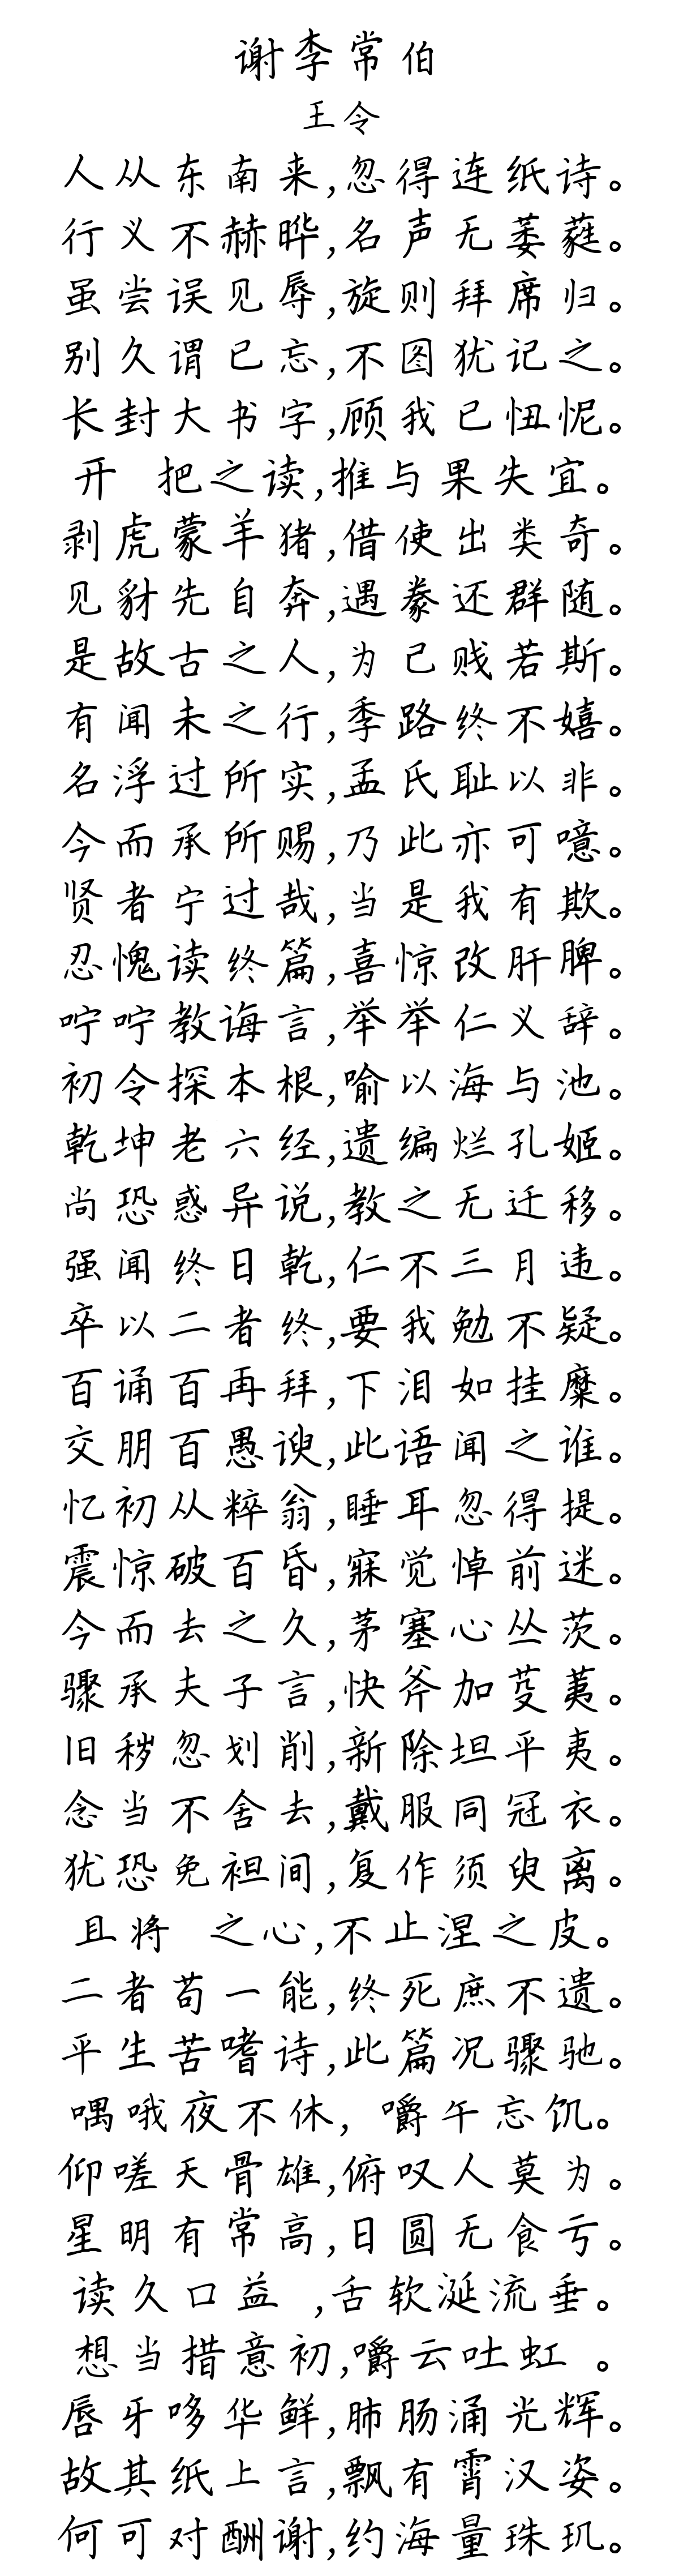 谢李常伯
王令
人从东南来,忽得连纸诗。
行义不赫晔,名声无萎蕤。
虽尝误见辱,旋则拜席归。
别久谓已忘,不图犹记之。
长封大书字,顾我已忸怩。
开 把之读,推与果失宜。
剥虎蒙羊猪,借使出类奇。
见豺先自奔,遇豢还群随。
是故古之人,为己贱若斯。
有闻未之行,季路终不嬉。
名浮过所实,孟氏耻以非。
今而承所赐,乃此亦可噫。
贤者宁过哉,当是我有欺。
忍愧读终篇,喜惊改肝脾。
咛咛教诲言,举举仁义辞。
初令探本根,喻以海与池。
乾坤老六经,遗编烂孔姬。
尚恐惑异说,教之无迁移。
强闻终日乾,仁不三月违。
卒以二者终,要我勉不疑。
百诵百再拜,下泪如挂糜。
交朋百愚谀,此语闻之谁。
忆初从粹翁,睡耳忽得提。
震惊破百昏,寐觉悼前迷。
今而去之久,茅塞心丛茨。
骤承夫子言,快斧加芟荑。
旧秽忽划削,新除坦平夷。
念当不舍去,戴服同冠衣。
犹恐免袒间,复作须臾离。
且将 之心,不止涅之皮。
二者苟一能,终死庶不遗。
平生苦嗜诗,此篇况骤驰。
喁哦夜不休, 嚼午忘饥。
仰嗟天骨雄,俯叹人莫为。
星明有常高,日圆无食亏。
读久口益 ,舌软涎流垂。
想当措意初,嚼云吐虹 。
唇牙哆华鲜,肺肠涌光辉。
故其纸上言,飘有霄汉姿。
何可对酬谢,约海量珠玑。